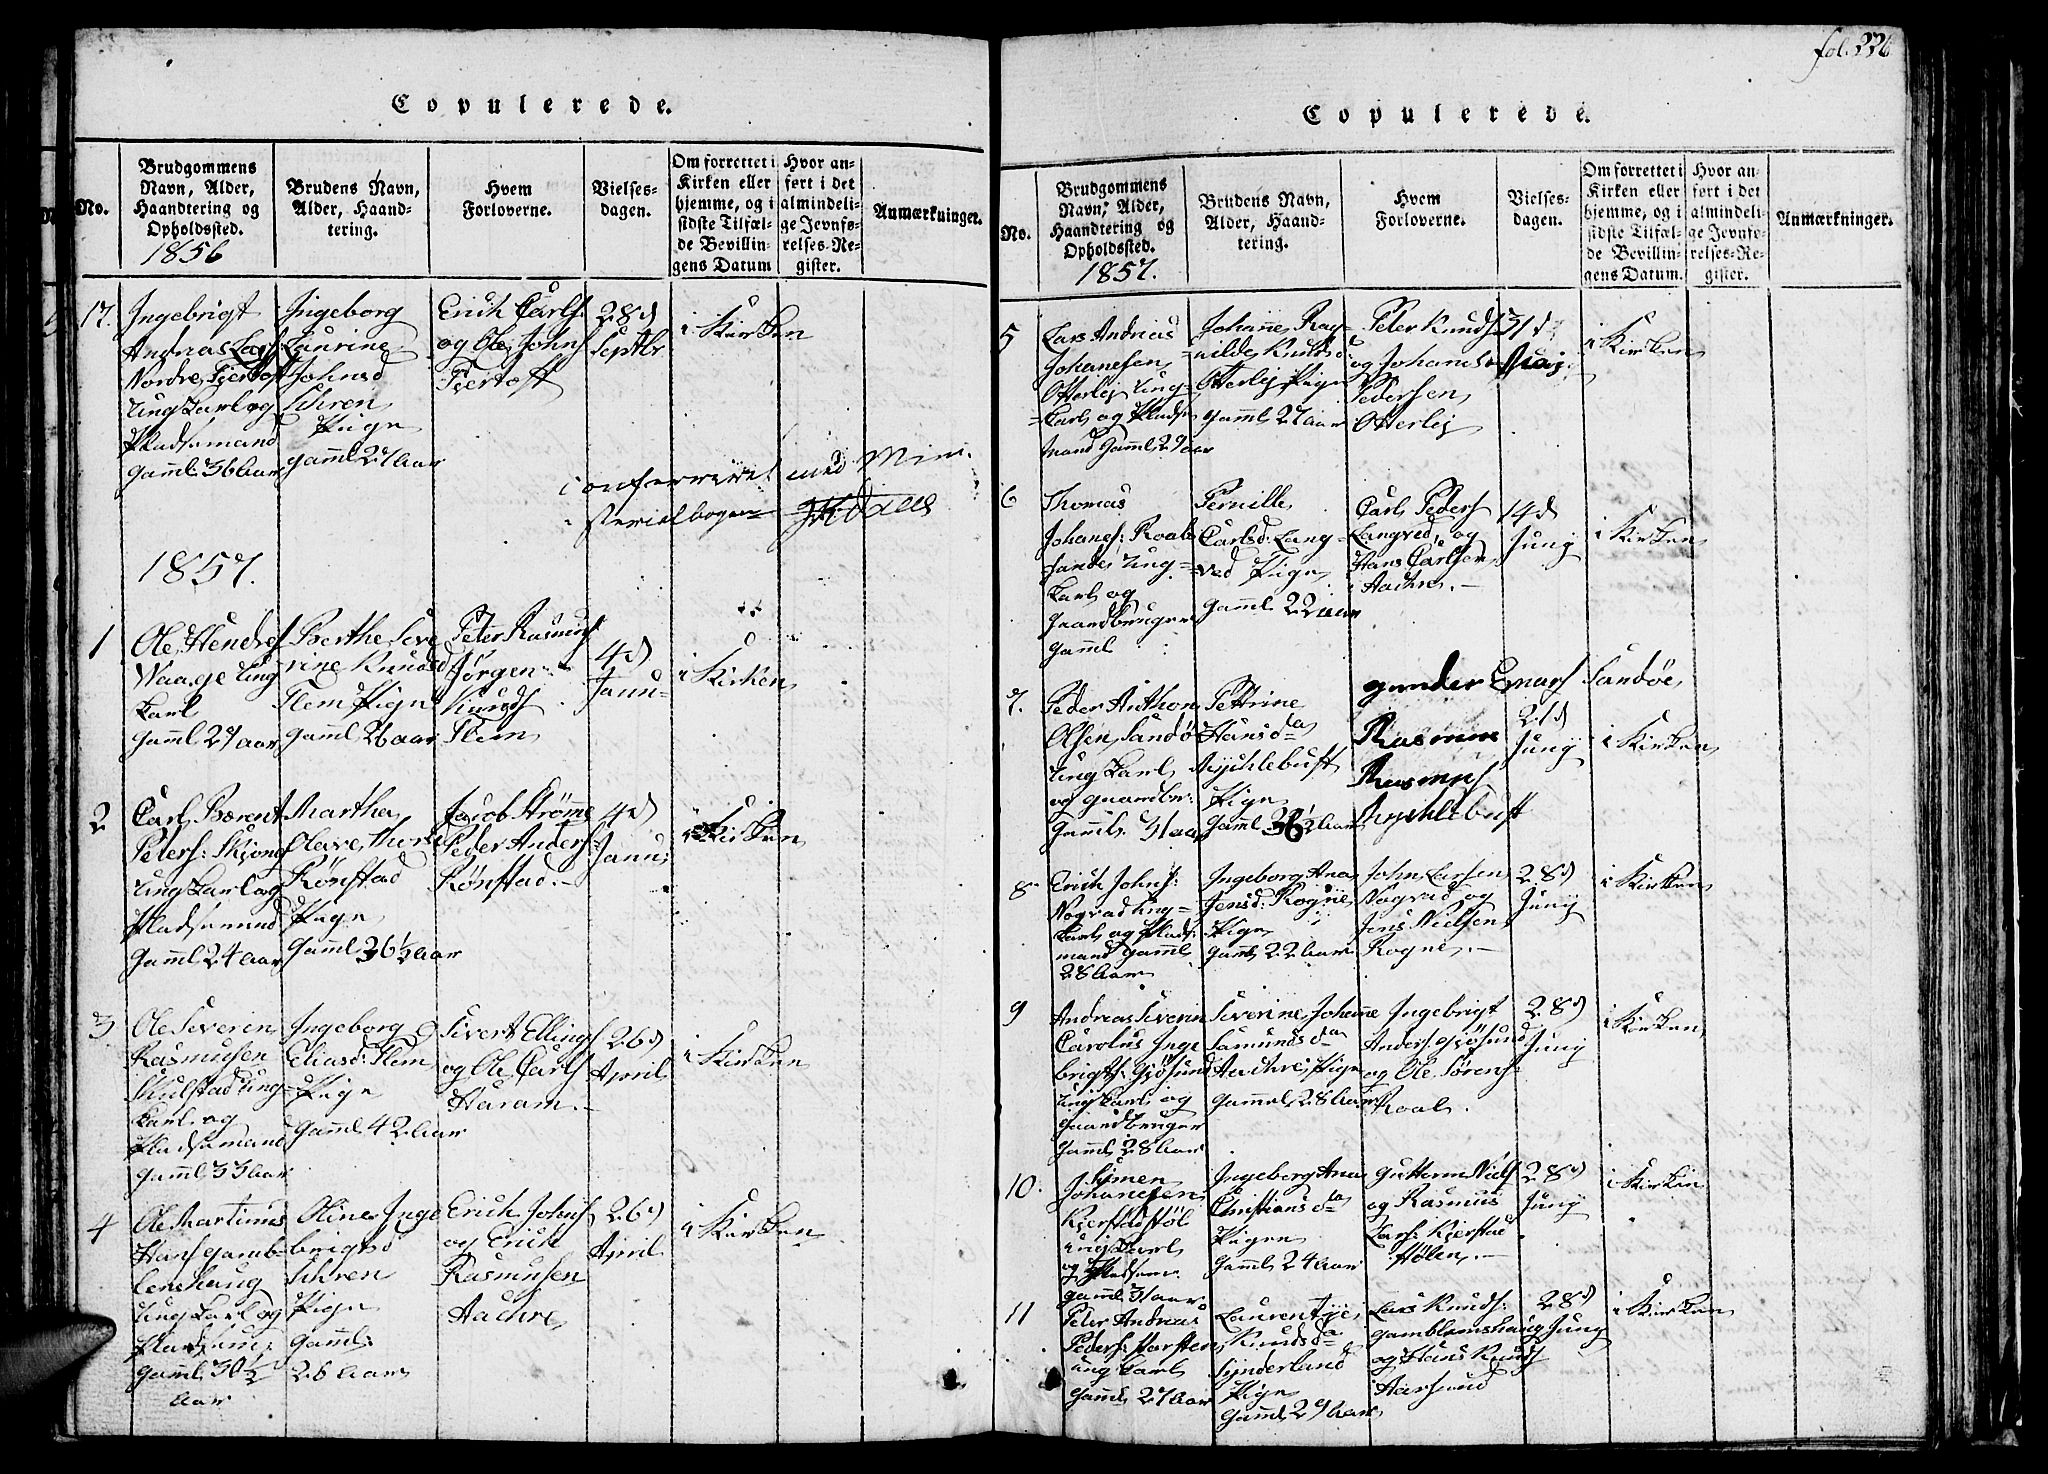 Copulerede.
No.
Brudgommens
Navn, Alder,
Haandtering og
Opholdssted.
1856
Brudens Navn,
Alder, Haand-
tering.
Hvem
Forloverne.
Vielses-
dagen.
Om forrettet i
Kirken eller
hjemme, og i
sidste Tilfæl-
de Bevillin-
gens Datum
Hvor an-
ført i det
almindeli-
ge Jevnfø-
relses-Re-
gister.
Anmærkninger.
17.
Ingebrigt
Andreas Lars:
Nordre Fjertoft
Ungkarl og
Pladsemand
Gaml 36 Aar
Ingeborg
Laurine
Johnsd
Uhren
Pige
Gaml 27 Aar
Erich Carls:
og Ole Johns
Fjertoft
28d
Septbr
i Kirken
conferriret med Mini-
sterialbogen
1857.
1
Ole Hendrs
Waage Ung
Karl
Gaml 27 aar
Berthe Seve
rine Knudsd
Flem Pige
Gaml 26 aar
Peter Rasmus
Jørgen
Knuds
Flem
4d
Janu-
i Kirken
2
Carl Berent
Peters: Skjong
Ungkarl og
Pladsemand
Gaml 24 Aar
Marthe
Olave Thor
Rønstad
Pige
Gaml 36½ Aar
Jacob Strømme
Peder Anders:
Rønstad.
4d
Janu:
i Kirken
3
Ole Severin
Rasmusen
Skulstad Ung-
Karl og
Pladsemand
Gaml 33 Aar
Ingeborg
Eliasd: Flem
Pige
Gaml 42 Aar
Sivert Ellings
og Ole Carls
Haram.
26d
April
i Kirken
4
Ole Martinus
Hans Gamb-
lenshaug
Ung Karl og
Pladsem:
Gaml 30½
Aar
Oline Inge
brigtsd
Uhren
Pige
Gaml:
26 Aar
Erich Johns
og Erich
Rasmusen
Aachre
26d
April
i Kirken
fol. 226
Copulerede.
No.
Brudgommens
Navn, Alder,
Haandtering og
Opholdssted.
1857.
Brudens Navn,
Alder, Haand-
tering.
Hvem
Forloverne.
Vielses-
dagen.
Om forrettet i
Kirken eller
hjemme, og i
sidste Tilfæl-
de Bevillin-
gens Datum.
Hvor an-
ført i det
almindeli-
ge Jevnfø-
relses-Re-
gister.
Anmærkninger.
5
Lars Andreas
Johanesen
Otterlej Ung-
Karl og Pladse
mand Gaml 27 aar
Johane Rag-
nilde Knudsd
Otterlej Pige
Gaml 27 aar
Peter Knuds
og Johannes
Pedersen
Otterlej
31d
Maj
i Kirken
6
Thomas
Johanes: Roald
sandes Ung-
Karl og
Gaardbruger
Gaml
Pernille
Carlsd: Lang-
ved Pige
Gaml 22 aar
Carl Peders
Langved, og
Hans Carlsen
Aachre.
14d
Junij
i Kirken
7.
Peder Anthon
Olsen Sandø
Ung Karl
og gaardbr:
Gaml 31 aar
Pettrine
Hansda
Mychlebust
Pige
Gaml 36½ Aar
Gunder Emars Sandøe
Rasmus
Rasmus
Mychlebust
21d
Junij
i Kirken
8
Erich Johns:
Vogvad Ung-
Karl og Pladse
mand Gaml
28 Aar
Ingeborg Ana
Jensd: Rogne
Pige
Gaml 22 Aar
John Larsen
Vogvad og
Jens Nielsen
Rogne.
28d
Junij
i Kirken
9
Andreas Severin
Carolus Inge
brigts: Gjøsund
Ung Karl og
Gaardbruger
Gaml 28 Aar
Severine Johanne
Samundsda
Aachre, Pige
Gammel 28 Aar
Ingebrigt
Anders: Gjøsund
og Ole Sørens:
Roal.
28d
Junij
i Kirken
10.
Simen
Johanesen
Kjerstadstøl
Ung Karl
og Pladsem:
Gaml 31 aar
Ingeborg Ana
Christiansda
Pige
Gaml 24 Aar
Guttorm Niels
og Rasmus
Lars: Kjerstad
støten.
28d
Junij
i Kirken
11
Peter Andreas
Peders: Harsten
Ung Karl
Gaml 27 Aar
Laurentzje
Knudsda
Synderland
Pige
Gaml 29 Aar
Lars Knuds:
Gamblemshaug
og Hans Knuds
Aarsund
28d
Junij
i Kirken